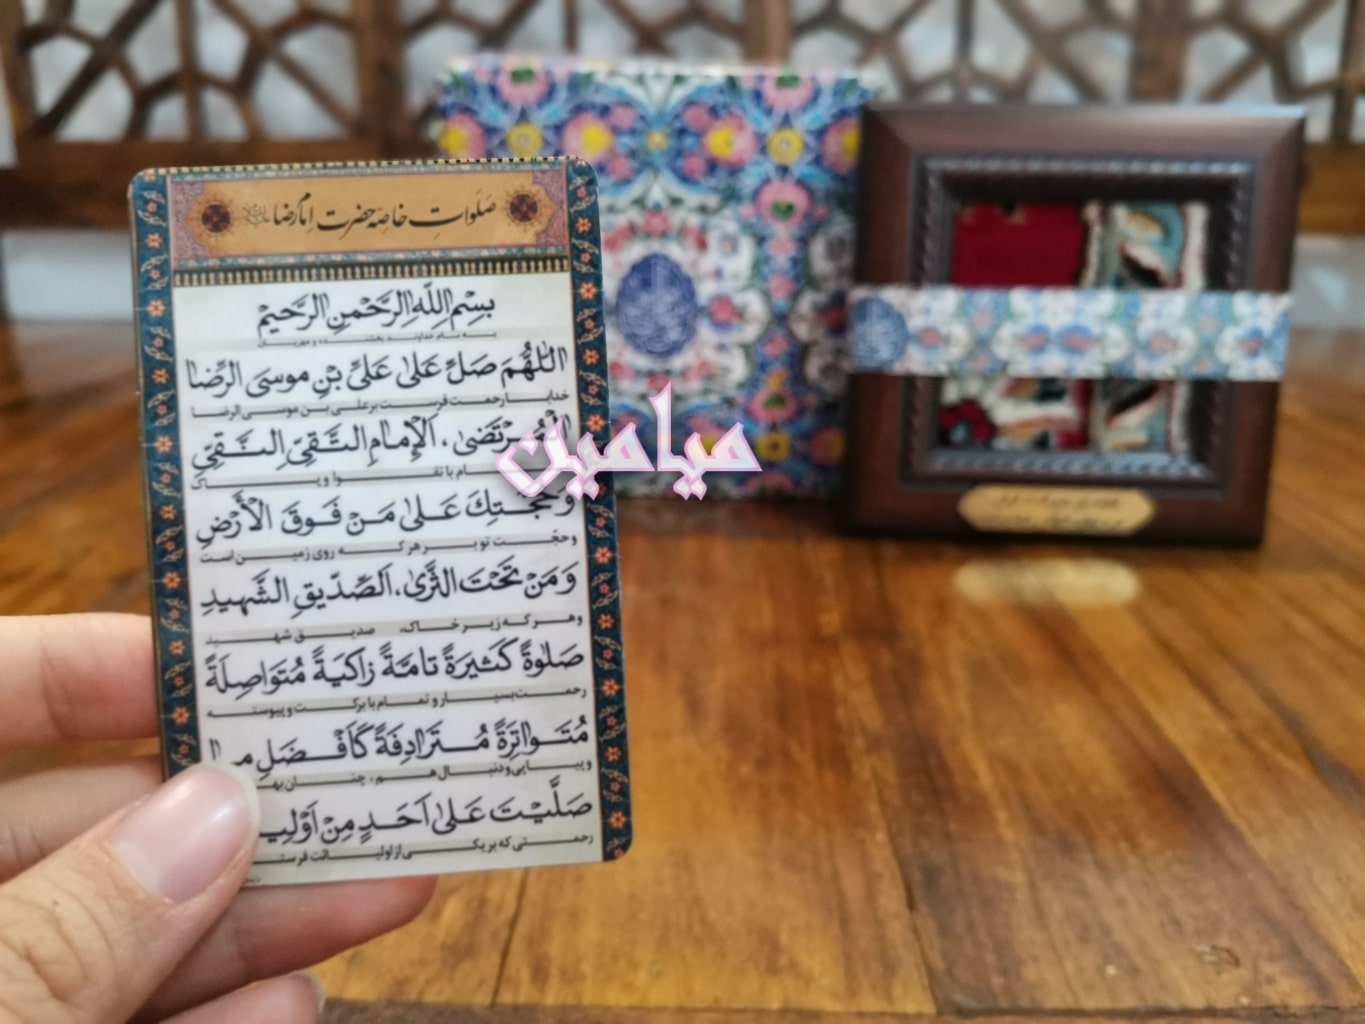 صلوات خاصه حضرت امام رضا
بِسْمِ اللّهِ الرَّحْمنِ الرَّحيمْ
به نام خداوند بخشنده و مهربان
اَللّهُمَ صَلِّ عَلی عَلیِّ بْنِ موسَی الرِّضَا
خدایا رحمت فرست بر علی بن موسی الرضا
الْمُرْتَضی، اَلْإمامِ التَّقِیِّ النَّقِیِّ
امام با تقوا و پاک
وَ حُجَّتِكَ عَلی مَنْ فَوْقَ الْأَرْضِ
و حجّت تو بر هر که روی زمین است
وَ مَنْ تَحْتَ الثَّری، اَلصِّدّیقِ الشَّهیدِ
و هر که زیر خاک، صدیق شهید
صَلوةً کَثیرَةً تامَّةً زاکِیَةً مُتَواصِلَةً
رحمت بسیار و تمام با برکت و پیوسته
مُتَواتِرَةً مُتَرادِفَةً کَاَفْضَلِ ما
و پیاپی و دنبال هم، چنان
صَلَّیْتَ عَلی اَحَدٍ مِنْ
رحمتی که بر یکی از اولیائت
میامین